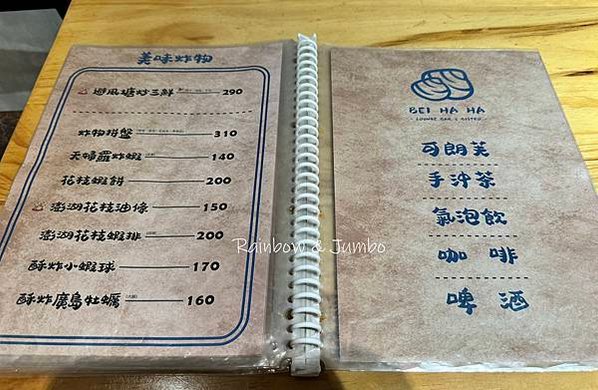 美味炸物
避風塘炒三鮮 290
炸物拼盤 310
天婦羅炸蝦 140
花枝蝦餅 200
澎湖花枝油條 150
澎湖花枝蝦排 200
酥炸小蝦球 170
酥炸廣島牡蠣 160
BEI HA HA
LOUNGE BAR & BISTRO
可朗芙
手沖茶
氣泡飲
咖啡
啤酒
Rainbow & Jumbo